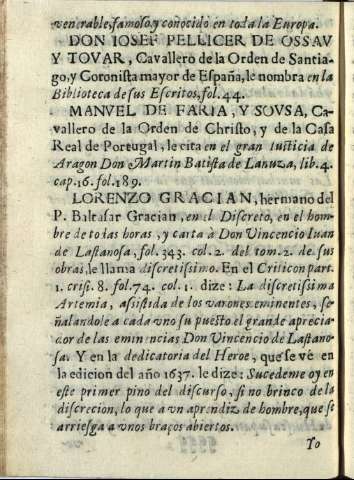 venerable, famoso, y conocido en toda la Europa.
DON IOSEF PELLICER DE OSSAV
Y TOVAR, Cavallero de la Orden de Santia-
go, y Coronista mayor de España, le nombra en la
Biblioteca de sus Escritos, fol. 44.
MANVEL DE FARIA, Y SOVSA, Ca-
vallero de la Orden de Christo, y de la Casa
Real de Portugal, le cita en el gran Iusticia de
Aragon Don Martin Batista de Lanuza, lib. 4.
cap. 16. fol. 189.
LORENZO GRACIAN, hermano del
P. Baltasar Gracian, en el Discreto, en el hom-
bre de todas horas, y carta à Don Vincencio Iuan
de Lastanosa, fol. 343. col. 2. del tom. 2. de sus
obras, le llama discretissimo. En el Criticon part.
1. crisi. 8. fol. 74. col. 1. dize: La discretissima
Artemia, assistida de los varones eminentes, se-
ñalandole a cada vno su puesto el grande aprecia-
dor de las eminencias Don Vincencio de Lastano-
sa. Y en la dedicatoria del Heroe, que se vè en
la edicion del año 1637. le dize: Sucedeme oy en
este primer pino del discurso, si no brinco de la
discrecion, lo que a vn aprendiz de hombre, que se
arriesga a vnos braços abiertos.
Yo